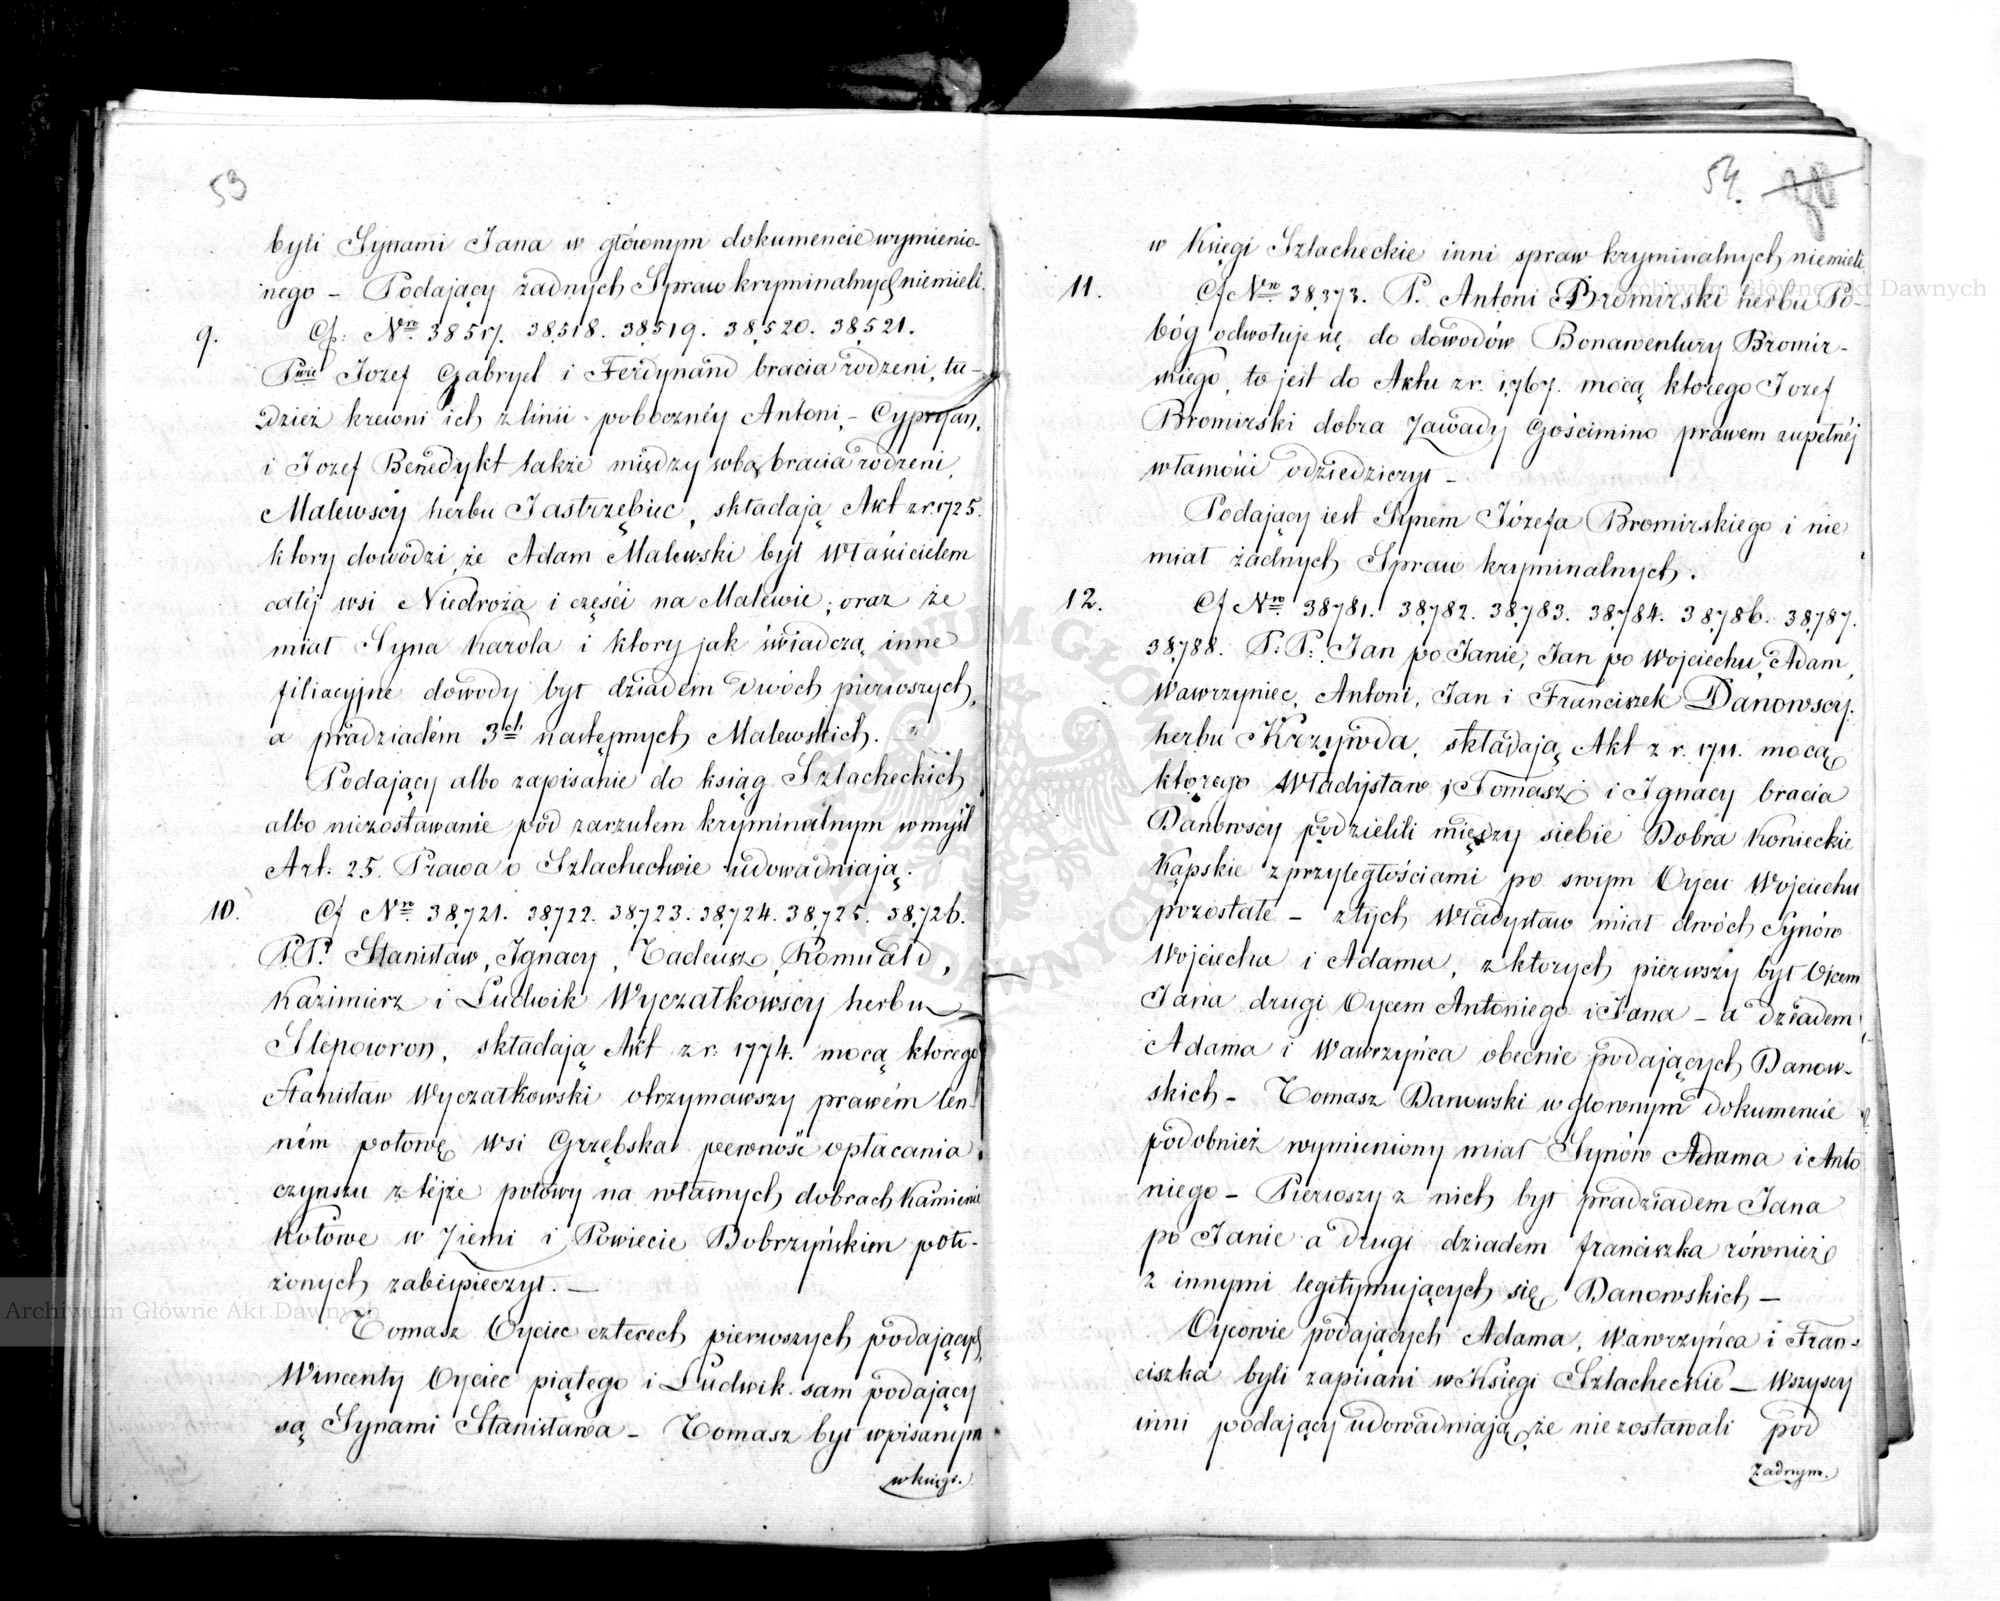 53
byli Synami Jana w głównym dokumencie wymienio-
nego – Podający żadnych Spraw kryminalnych niemieli.
9. Cf: Nro 38517. 38518. 38519. 38520. 38521.
Pwie Jozef Gabryel i Ferdynand bracia rodzeni, tu-
dzież krewni ich z linii poboczney Antoni, – Cypryan,
i Jozef Benedykt także między sobą bracia rodzeni,
Malewscy herbu Jastrzębiec, składają Akt z r. 1725.
ktory dowodzi, że Adam Malewski był Właścicielem
całéj wsi Niedroża i części na Malewie; oraz że
miał Syna Karola i ktory jak świadczą inne
filiacyjne dowody był dziadem dwóch pierwszych,
a pradziadem 3ch następnych Malewskich.
Podający albo zapisanie do ksiąg Szlacheckich
albo niezostawanie pod zarzutem kryminalnym w myśl
Art: 25. Prawa o Szlachectwie udowadniają.
10. Cf Nro 38,721. 38,722. 38,723. 38,724. 38,725. 38,726.
P.P. Stanisław, Ignacy, Tadeusz, Romuald,
Kazimierz i Ludwik Wyczałkowscy herbu
Slepowron, składają Akt z r. 1774. mocą ktorego
Stanisław Wyczałkowski otrzymawszy prawem len-
ném połowę wsi Grzębska pewność opłacania
czynszu z tejże połowy na własnych dobrach Kamienie
Kotowe w Ziemi i Powiecie Dobrzyńskim poło-
żonych zabeśpieczył. –
Tomasz Oyciec czterech pierwszych podających,
Wincenty Oyciec piątego i Ludwik sam podający
są Synami Stanisława – Tomasz był wpisanym
w księgi.
54.
w Księgi Szlacheckie inni spraw kryminalnych niemieli.
11. Cf Nro 38,373. P. Antoni Bromirski herbu Po-
bóg odwołuje się do dowodów Bonawentury Bromir-
skiego, to jest do Aktu z r. 1767. mocą ktorego Jozef
Bromirski dobra Zawady Gościmino prawem zupełnéj
własności odziedziczył –
Podający jest Synem Józefa Bromirskiego i nie
miał żadnych Spraw kryminalnych.
12. Cf Nro 38781. 38,782. 38,783. 38,784. 38,786. 38,787.
38,788. P.P. Jan po Janie, Jan po Wojciechu, Adam,
Wawrzyniec, Antoni, Jan i Franciszek Danowscy.
herbu Krzywda, składają Akt z r. 1711. mocą
ktorego Władysław, Tomasz i Ignacy bracia
Danowscy podzielili między siebie Dobra Konieckie
Kąpskie z przyległościami po swym Oycu Wojciechu
pozostałe – z tych Władysław miał dwóch Synów
Wojciecha i Adama, z ktorych pierwszy był Ojcem
Jana drugi Oycem Antoniego i Jana – a dziadem
Adama i Wawrzyńca obecnie podających Danow-
skich – Tomasz Danowski w głownym dokumencie
podobnież wymieniony miał Synów Adama i Anto
niego – Pierwszy z nich był pradziadem Jana
po Janie a drugi dziadem franciszka również
z innymi legitymujących się Danowskich –
Oycowie podających Adama, Wawrzyńca i Fran-
ciszka byli zapisani w Księgi Szlacheckie – Wszyscy
inni podający udowadniają, że nie zostawali pod
żadnym.
Archiwum Główne Akt Dawnych
Archiwum Główne Akt Dawnych
ARCHIWUM GŁÓWNE AKT DAWNYCH